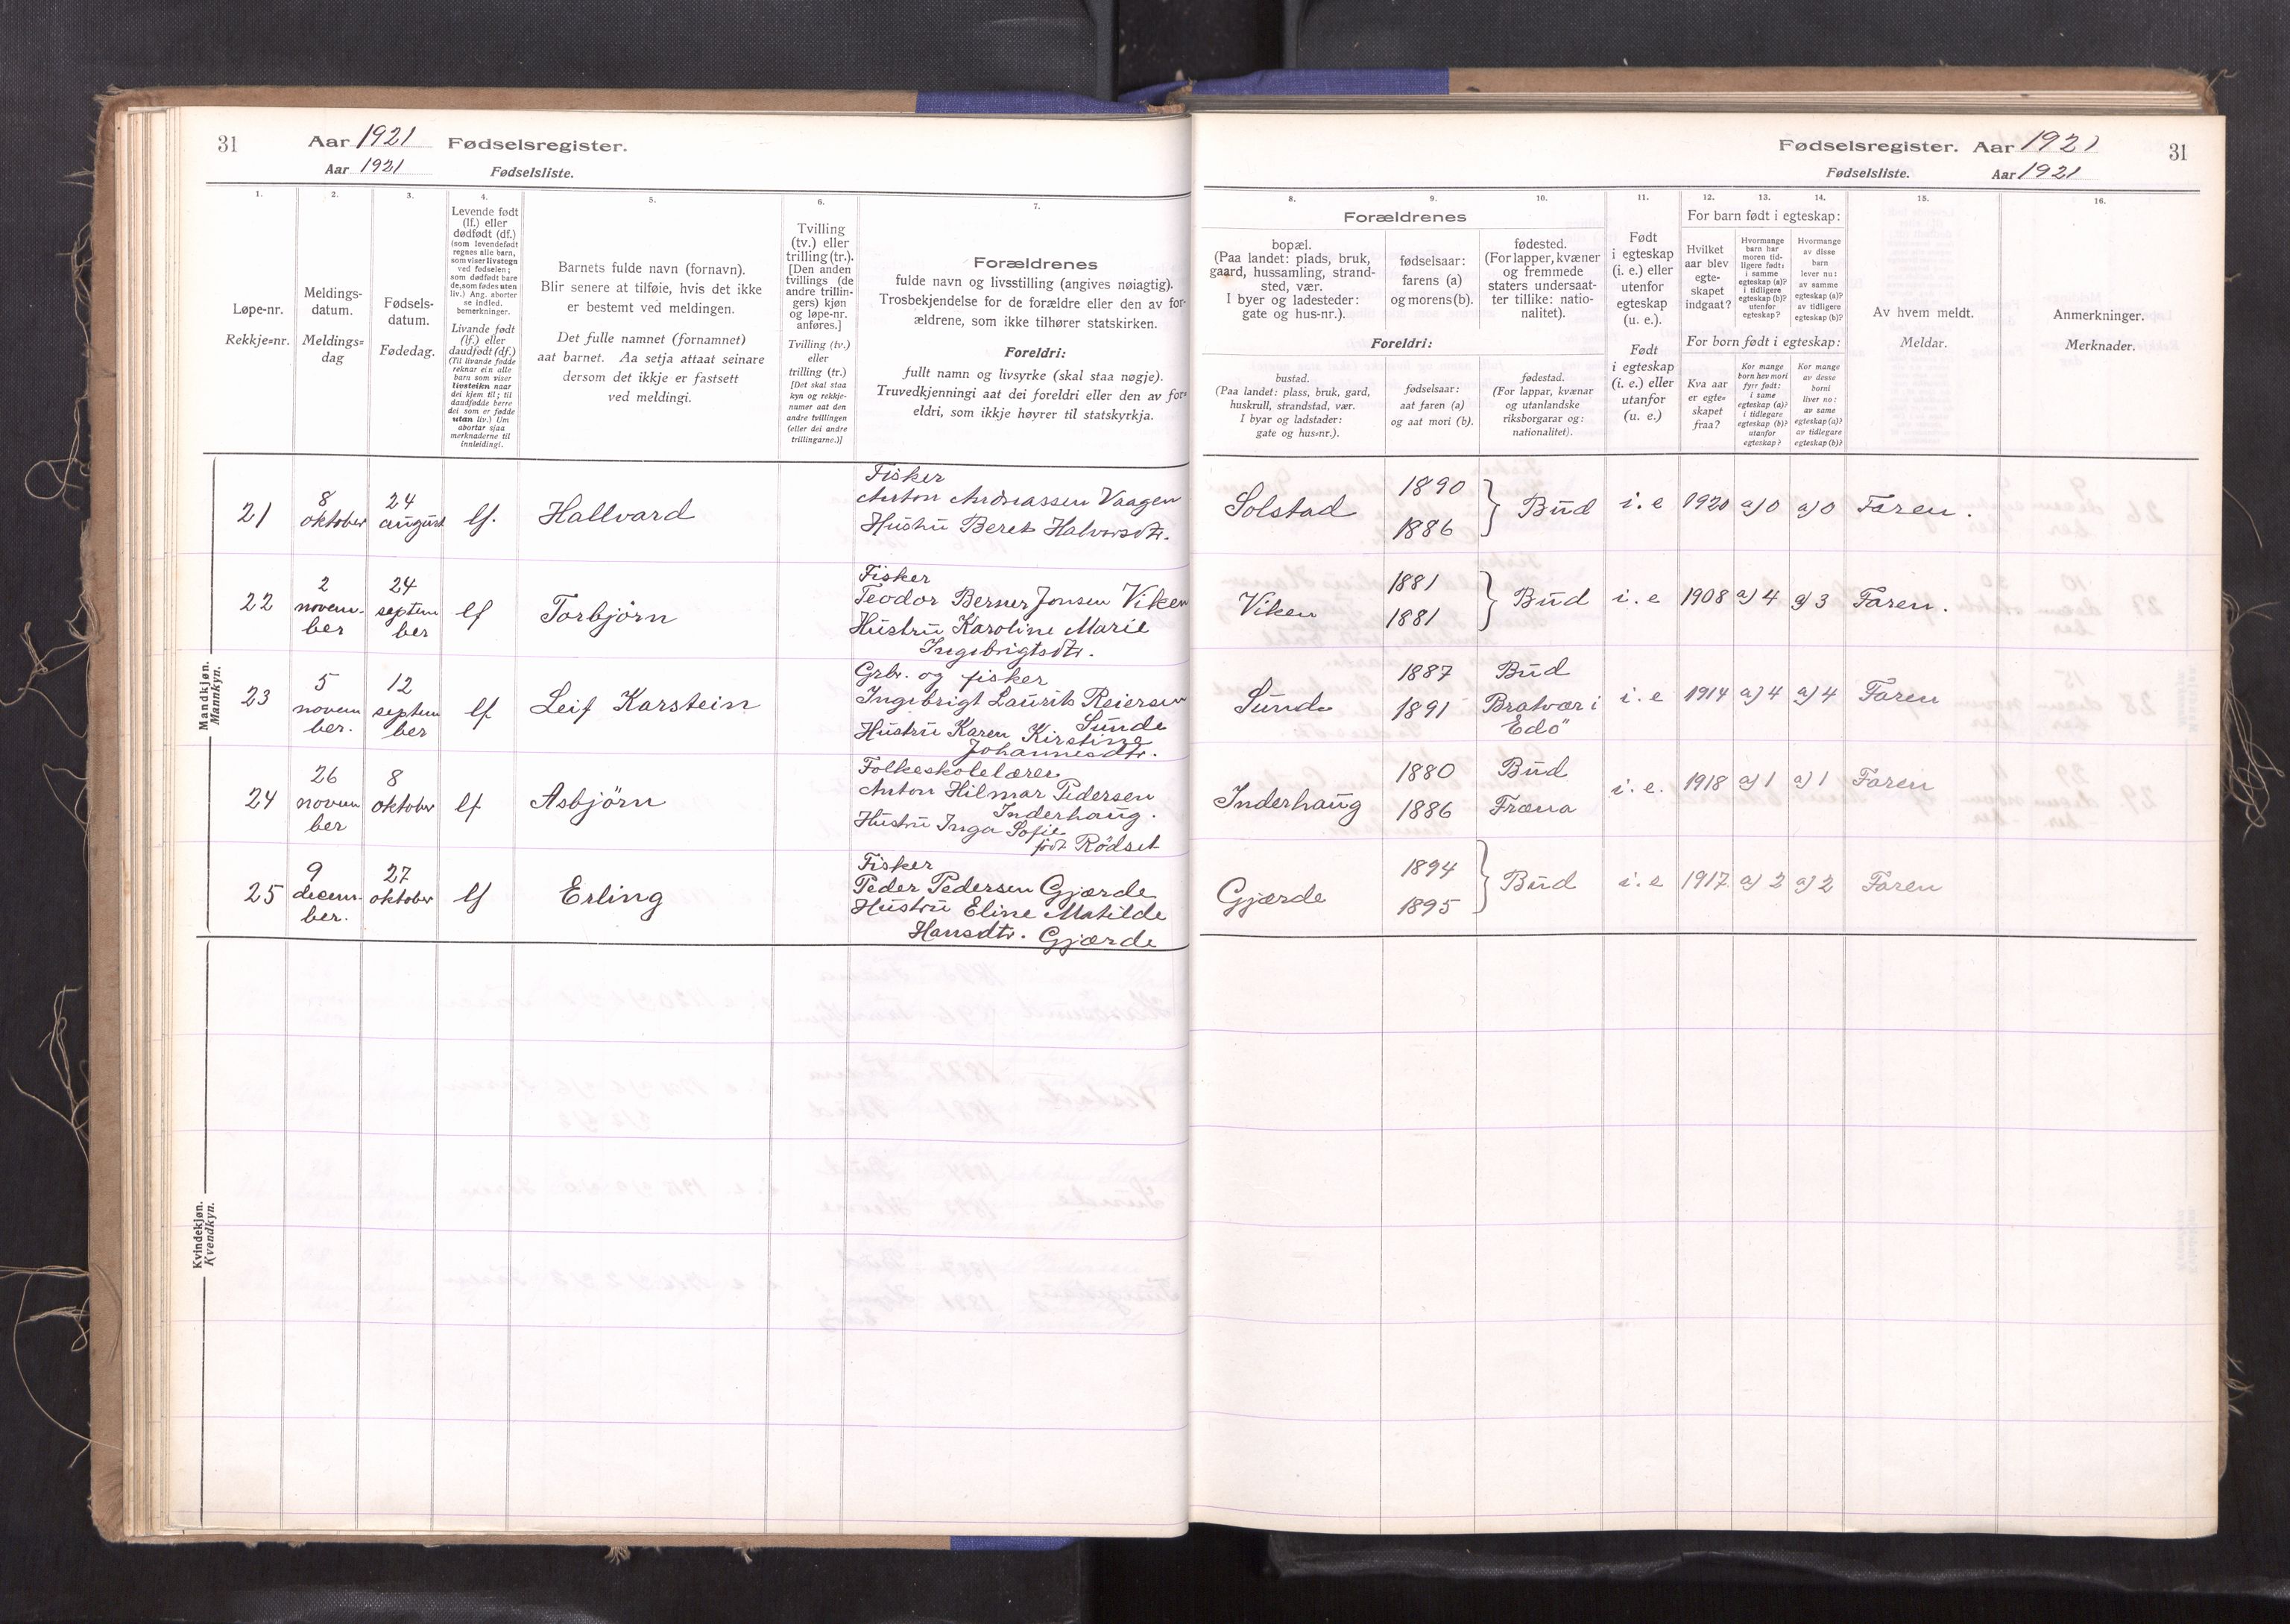 31 Aar 1921 Fødselsregister.
Aar 1921 Fødselsliste.
Fødselsregister. Aar 1921 31
Fødselsliste. Aar 1921
1.
Løpe-nr.
Rekkje=nr.
2.
Meldings-
datum.
Meldings=
dag
3.
Fødsels-
datum.
Fødedag.
4.
Levende født
(lf.) eller
dødfødt (df.)
(som levendefødt
regnes alle barn,
som viser livstegn
ved fødselen;
som dødfødt bare
de, som fødes uten
liv.) Ang. aborter
se indled.
bemerkninger.
Livande født
(lf.) eller
daudfødt (df.)
(Til livande fødde
reknar ein alle
barn som viser
livsteikn naar
dei kjem til; til
daudfødde berre
dei som er fødde
utan liv.) Um
abortar sjaa
merknaderne til
innleidingi.
5.
Barnets fulde navn (fornavn).
Blir senere at tilføie, hvis det ikke
er bestemt ved meldingen.
Det fulle namnet (fornamnet)
aat barnet. Aa setja attaat seinare
dersom det ikkje er fastsett
ved meldingi.
6.
Tvilling
(tv.) eller
trilling (tr.).
[Den anden
tvillings (de
andre trillin-
gers) kjøn
og løpe-nr.
anføres.]
Tvilling (tv.)
eller
trilling (tr.)
[Det skal staa
kyn og rekkje-
numer aat den
andre tvillingen
(eller dei andre
trillingarne.)]
7.
Forældrenes
fulde navn og livsstilling (angives nøiagtig).
Trosbekjendelse for de forældre eller den av for-
ældrene, som ikke tilhører statskirken.
Foreldri:
fullt namn og livsyrke (skal staa nøgje).
Truvedkjenningi aat dei foreldri eller den av for=
eldri, som ikkje høyrer til statskyrkja.
Forældrenes
8.
bopæl.
(Paa landet: plads, bruk,
gaard, hussamling, strand-
sted, vær.
I byer og ladesteder:
gate og hus-nr.).
9.
fødselsaar:
farens (a)
og morens (b).
10.
fødested.
(For lapper, kvæner
og fremmede
staters undersaat-
ter tillike: natio-
nalitet).
Foreldri:
bustad.
(Paa landet: plass, bruk, gard,
huskrull, strandstad, vær.
I byar og ladstader:
gate og hus=nr.).
fødselsaar:
aat faren (a)
og aat mori (b).
fødestad.
(For lappar, kvænar
og utanlandske
riksborgarar og:
nationalitet).
11.
Født
i egteskap
(i. e.) eller
utenfor
egteskap
(u. e.).
Født
i egteskap
(i. e.) eller
utanfor
(u. e.)
For barn født i egteskap:
12.
Hvilket
aar blev
egte-
skapet
indgaat?
13.
Hvormange
barn har
moren tid-
ligere født:
i samme
egteskap (a)?
i tidligere
egteskap (b)?
utenfor
egteskap?
14.
Hvormange
av disse
barn
lever nu:
av samme
egteskap (a)?
av tidligere
egteskap (b)?
For born født i egteskap:
Kva aar
er egte=
skapet
fraa?
Kor mange
born hev mori
fyrr født:
i same
egteskap (a)?
i tidlegare
egteskap (b)?
utanfor
egteskap?
Kor mange
av desse
borni
liver no:
av same
egteskap (a)?
av tidlegare
egteskap (b)?
15.
Av hvem meldt.
Meldar.
16.
Anmerkninger.
Merknader.
Mandkjøn.
Mannkyn.
21
8
oktober
24
august
lf.
Hallvard
Fisker
Anton Andreassen Vaagen
Hustru Beret Halvorsdtr.
Solstad
1890
1886
Bud
i. e
1920
a) 0
a) 0
Faren.
22
2
novem-
ber
24
septem
ber
lf
Torbjörn
Fisker
Teodor Berner Jonsen Viken
Hustru Karoline Marie
Ingebrigtsdtr.
Viken
1881
1881
Bud
i. e
1908
a) 4
a) 3
Faren.
23
5
novem
ber.
12
septem
ber
lf
Leif Karstein
Grbr. og fisker
Ingebrigt Laurits Reiersen
Sunde
Hustru Karen Kirstina
Johannesdtr.
Sunde
1887
1891
Bud
Bratvær i
Edö
i. e
1914
a) 4
a) 4
Faren
24
26
novem
ber
8
oktober
lf
Asbjörn
Folkeskolelærer
Anton Hilmar Pedersen
Inderhaug.
Hustru Inga Sofie
født Rödset
Inderhaug
1880
1886
Bud
Fræna
i. e.
1918
a) 1
a) 1
Faren
25
9
decem-
ber.
27
oktober
lf
Erling
Fisker
Peder Pedersen Gjærde
Hustru Eline Matilde
Hansdtr. Gjærde
Gjærde
1894
1895
Bud
i. e
1917
a) 2
a) 2
Faren
Kvindekjøn.
Kvendkyn.